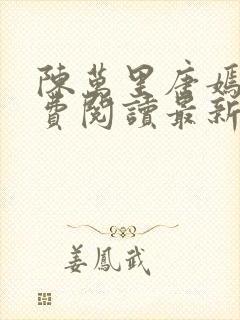 陳萬里唐嫣
費閱讀最新
姜鳳武